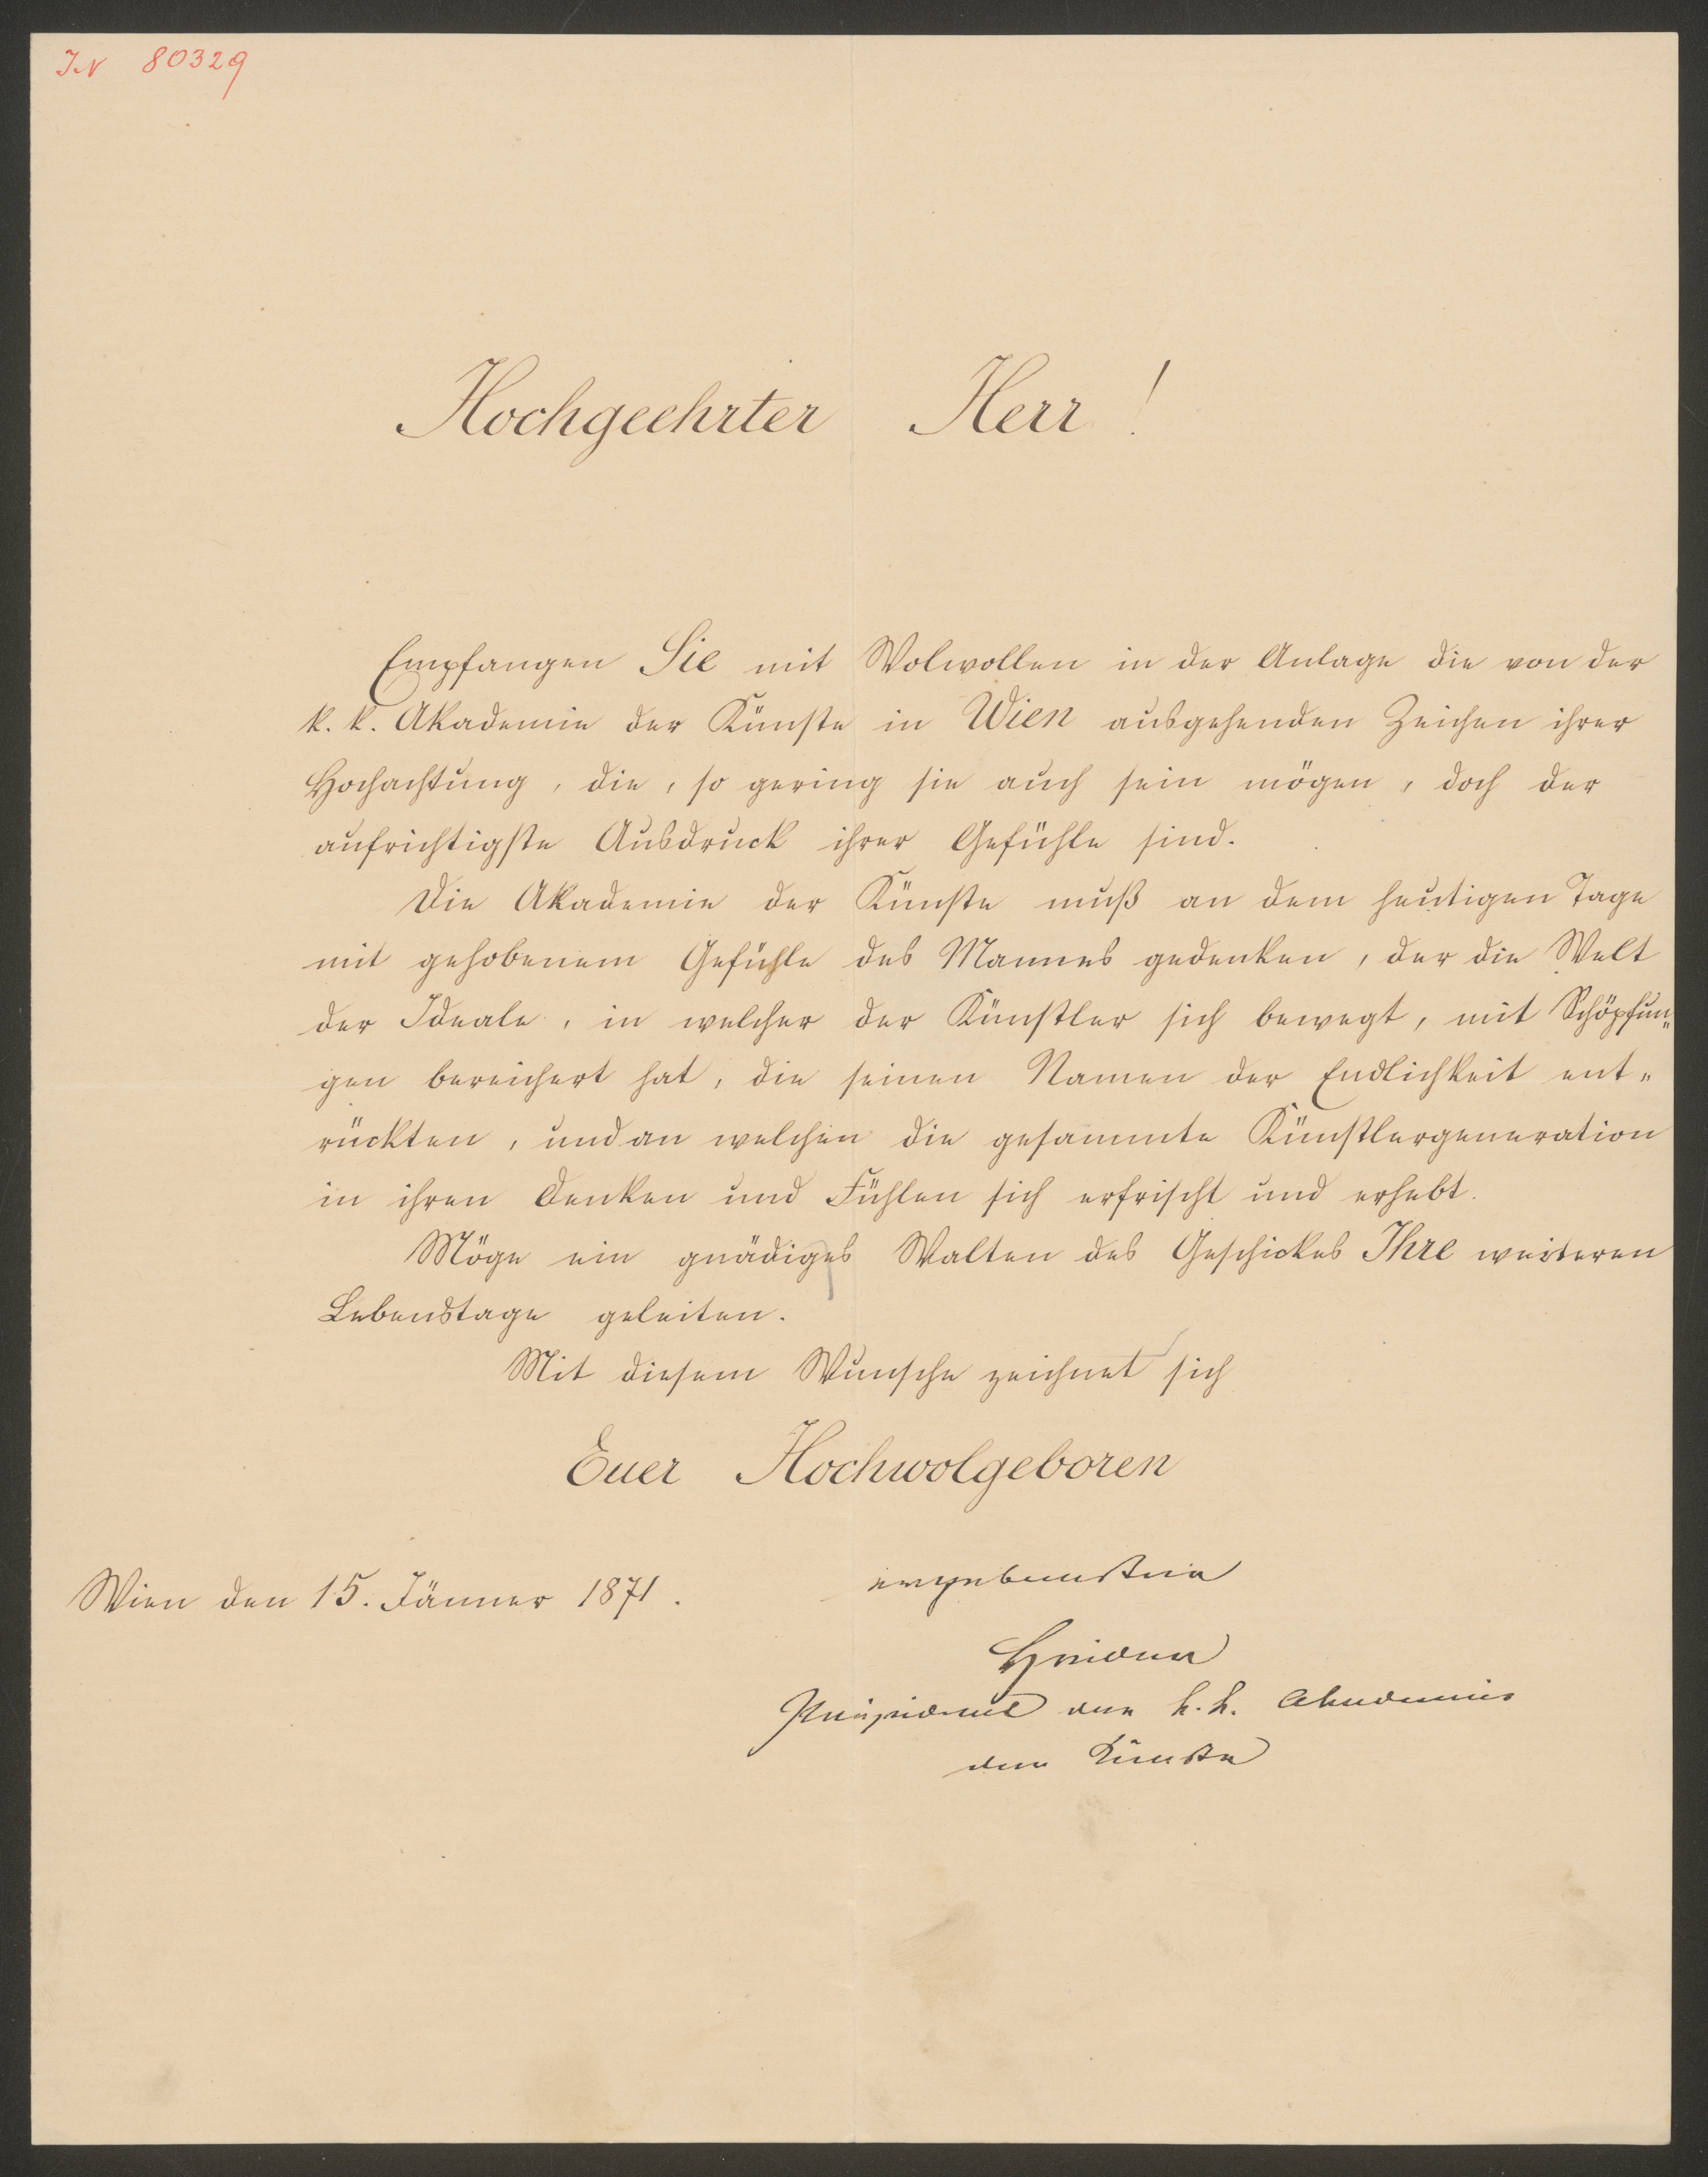 IN 80329
Hochgeehrter Herr!
Empfangen Sie mit Wolwollen in der Anlage die von der
k. k. Akademie der Künste in Wien ausgehenden Zeichen ihrer
Hochachtung, die, so gering sie auch sein mögen, doch der
aufrichtigste Ausdruck ihrer Gefühle sind.
Die Akademie der Künste muß an dem heutigen Tage
mit gehobenem Gefühle des Mannes gedenken, der die Welt
der Ideale, in welcher der Künstler sich bewegt, mit Schöpfun„
gen bereichert hat, die seinen Namen der Endlichkeit ent„
rückten, und an welchen die gesammte Künstlergeneration
in ihren Denken und Fühlen sich erfrischt und erhebt.
Möge ein gnädiges Walten des Geschickes Ihre weiteren
Lebenstage geleiten.
Mit diesem Wunsche zeichnet sich
Euer Hochwolgeboren
ergebenster
Wien den 15. Jänner 1871.
Heider
Präsident der k. k. Akademie
der Künste